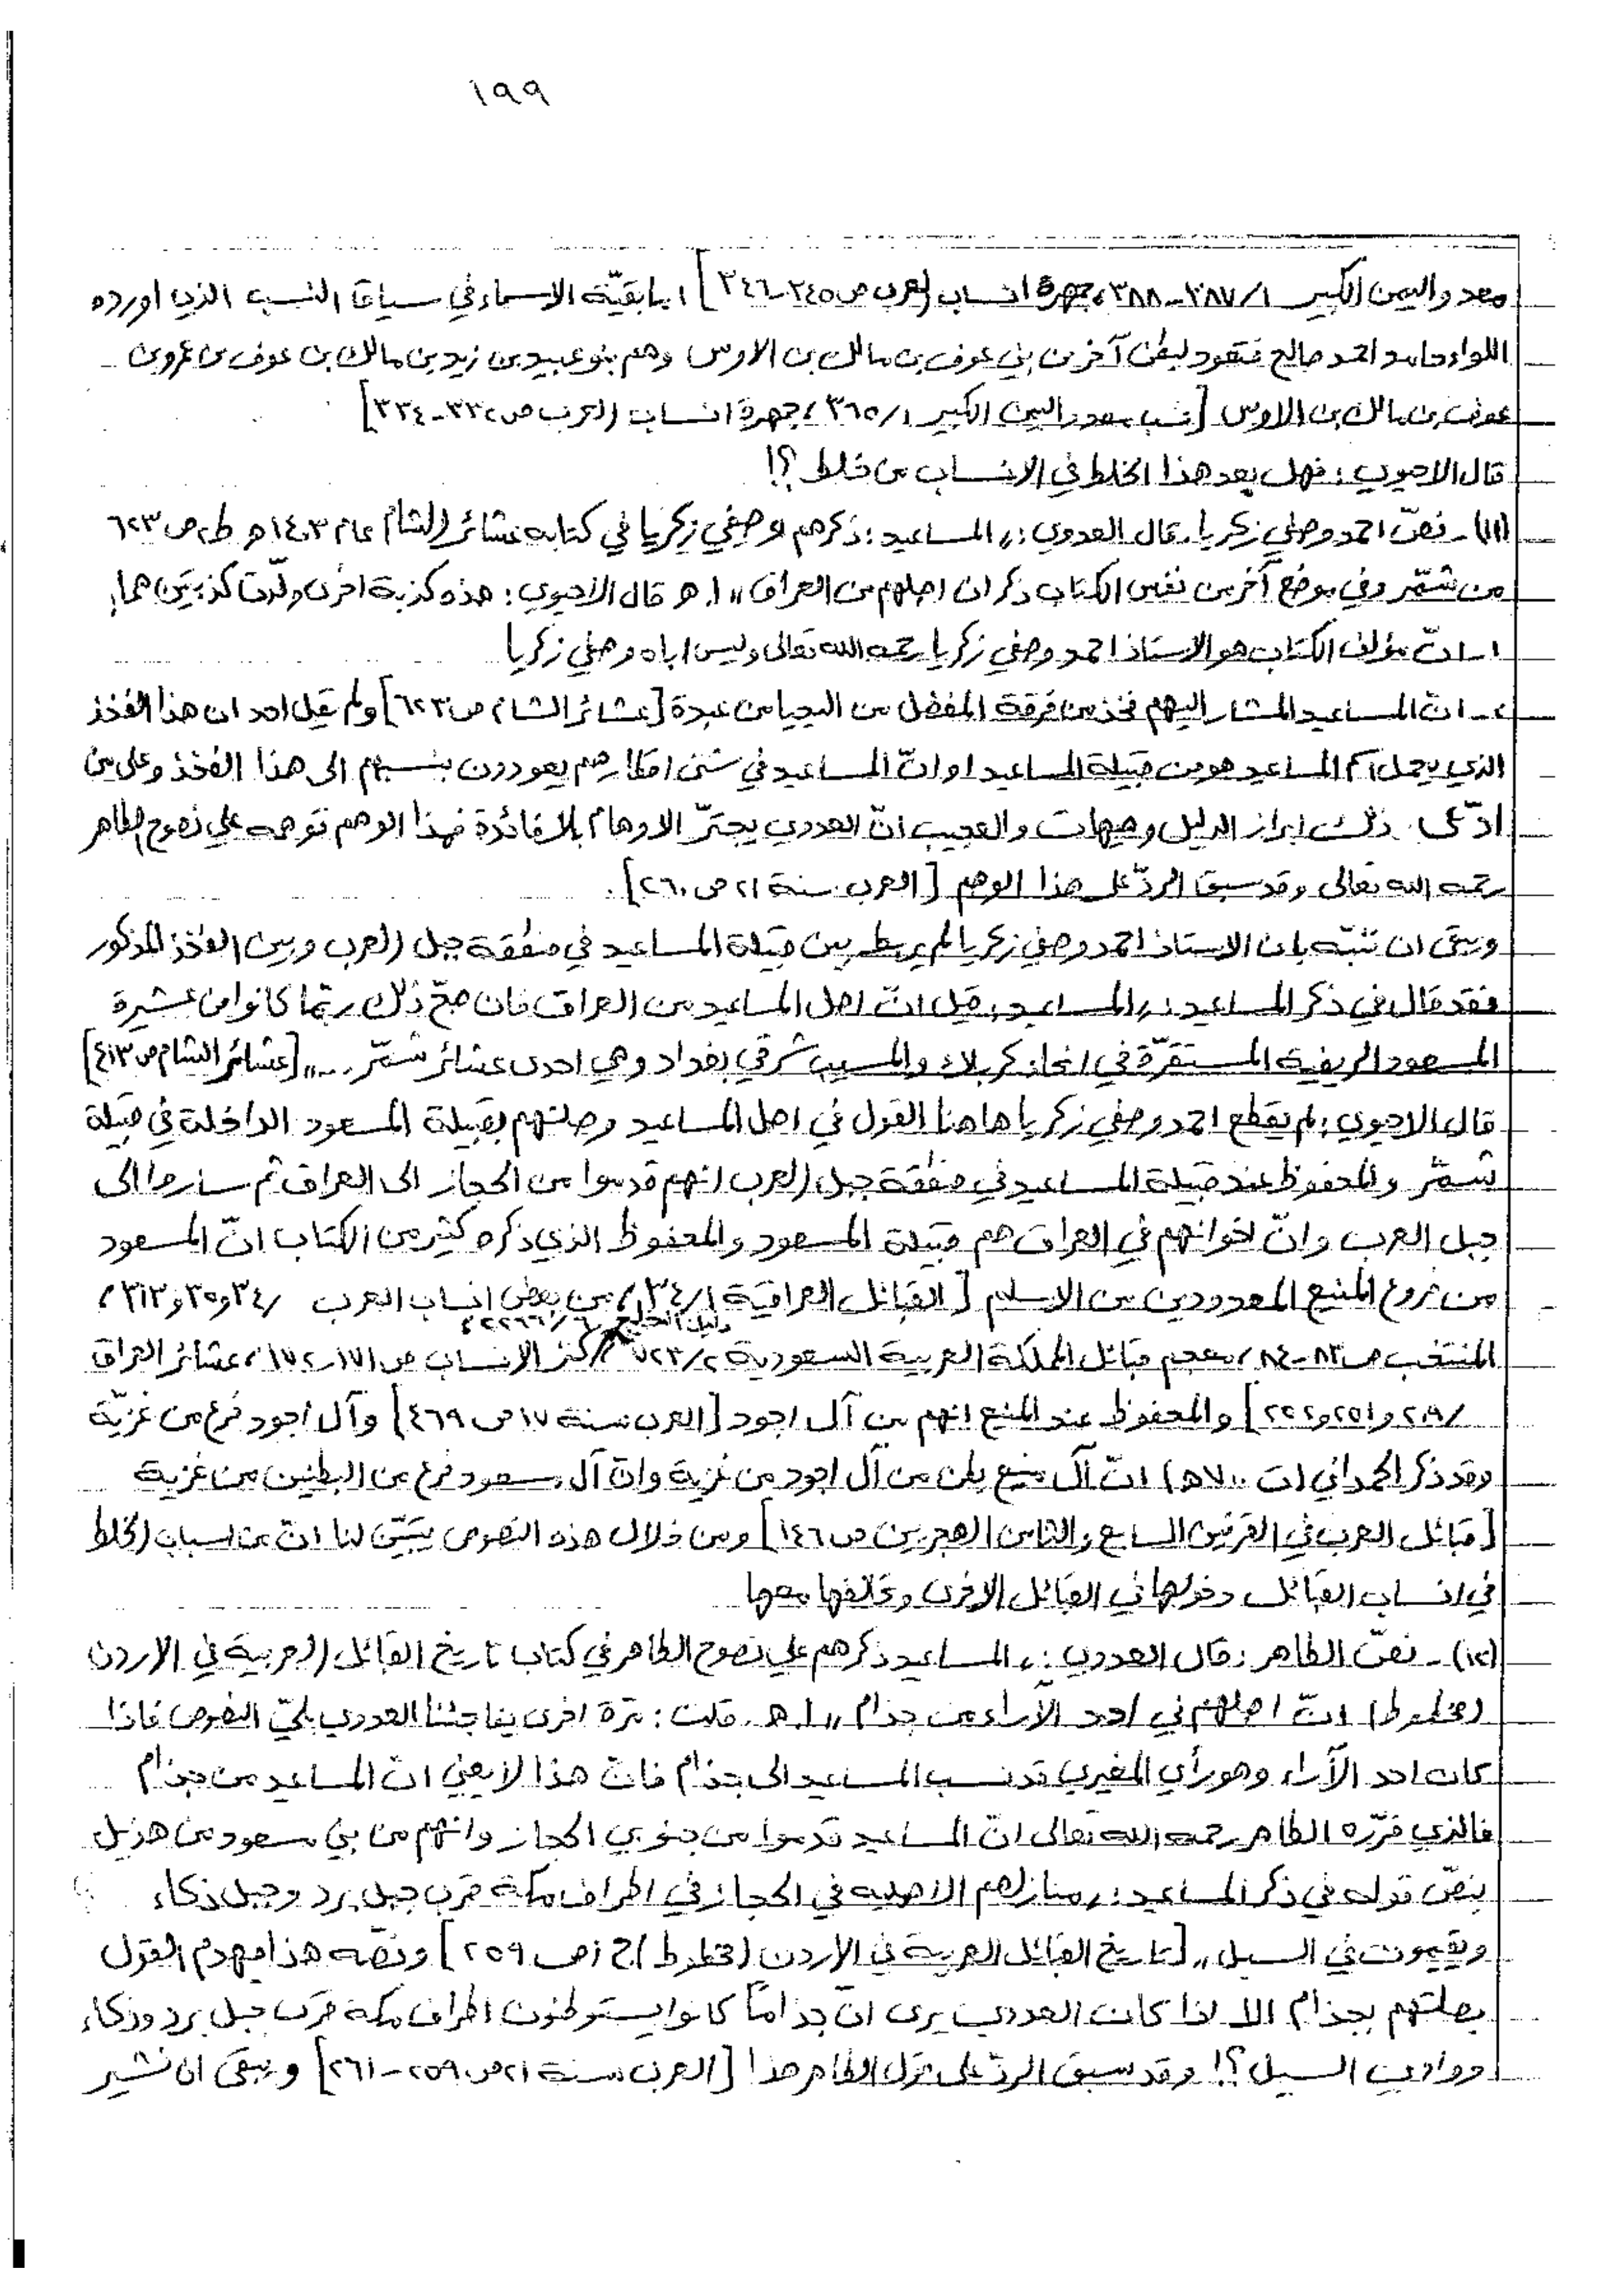 ١٩٩
معد واليمن الكبير ١/ ٣٨٧-٣٨٨، جمهرة انساب العرب ص ٣٤٥-٣٤٦] اما بقيّة الاسماء في سياق النسب الذي اورده
اللواء حامد احمد صالح فتعود لبطن آخر من بني عوف بن مالك بن الاوس وهم بنو عبيد بن زيد بن مالك بن عوف بن عمرو بن
عوف بن مالك بن الاوس [نسب معد واليمن الكبير ١/ ٣٦٥، جمهرة انساب العرب ص ٣٣٢-٣٣٤]
قال الاحيوي : فهل بعد هذا الخلط في الانساب من خلط ؟!
(١١)- نصّ احمد وصفي زكريا. قال العدوي :" المساعيد : ذكرهم وصفي زكريا في كتابه عشائر الشام عام ١٤٠٣ هـ ط٢ ص ٦٢٣
من شمّر وفي موضع آخر من نفس الكتاب ذكر ان اصلهم من العراق " ا. هـ قال الاحيوي : هذه كذبة اخرى ولّدت كذبتين هما :
١- انّ مؤلف الكتاب هو الاستاذ احمد وصفي زكريا رحمه الله تعالى وليس اباه وصفي زكريا
٢- انّ المساعيد المشار اليهم فخذ من فرقة المفضل من اليحيا من عبدة [عشائر الشام ص ٦٢٣] ولم يقل احد ان هذا الفخذ
الذي يحمل اسم المساعيد هو من قبيلة المساعيد او انّ المساعيد في شتى اقطارهم يعودون بنسبهم الى هذا الفخذ وعلى من
ادّعى ذلك ابراز الدليل وهيهات والعجيب انّ العدوي يجترّ الاوهام بلا فائدة فهذا الوهم توهمه علي نصوح الطاهر
رحمه الله تعالى وقد سبق الردّ على هذا الوهم [العرب سنة ٢١ ص ٢٦٠].
وبقي ان ننبّه بان الاستاذ احمد وصفي زكريا لم يربط بين قبيلة المساعيد في منطقة جبل العرب وبين الفخذ المذكور
فقد قال في ذكر المساعيد :" المساعيد : قيل انّ اصل المساعيد من العراق فان صحّ ذلك ربّما كانوا من عشيرة
المسعود الريفية المستقرّة في انحاء كربلاء والمسيب شرقي بغداد وهي احدى عشائر شمّر ...." [عشائر الشام ص ٤١٣]
قال الاحيوي : لم يقطع احمد وصفي زكريا هاهنا القول في اصل المساعيد وصلتهم بقبيلة المسعود الداخلة في قبيلة
شمّر والمحفوظ عند قبيلة المساعيد في منطقة جبل العرب انهم قدموا من الحجاز الى العراق ثم ساروا الى
جبل العرب وانّ اخوانهم في العراق هم قبيلة المسعود والمحفوظ الذي ذكره كثير من الكتاب انّ المسعود
من فروع المنيع المعدودين من الاسلم [القبائل العراقية ١/ ٣٤، من بعض انساب العرب / ٣٤ و٣٥ و٣١٣،
دليل الخليج ٦/ ٢٢٦٦،
المنتخب ص ٨٣-٨٤، معجم قبائل المملكة العربية السعودية ٢/ ٧٢٣، كنز الانساب ص ١٧١-١٧٢، عشائر العراق
/ ٢٨٩ و٢٥١ و٢٥٢] والمحفوظ عند المنيع انهم من آل اجود [العرب سنة ١٧ ص ٤٦٩] وآل اجود فرع من غزيّة
وقد ذكر الحمداني (ت ٧٠٠هـ) انّ آل منيع بطن من آل اجود من غزية وانّ آل مسعود فرع من البطنين من غزية
[قبائل العرب في القرنين السابع والثامن الهجريين ص ١٤٦] ومن خلال هذه النصوص يتبيّن لنا انّ من اسباب الخلط
في انساب القبائل دخولها في القبائل الاخرى وتحالفها معها
(١٢)- نصّ الطاهر : قال العدوي :" المساعيد ذكرهم علي نصوح الطاهر في كتاب تاريخ القبائل العربية في الاردن
(مخطوط) انّ اصلهم في احد الآراء من جذام " ا. هـ. قلت : مرّة اخرى يفاجئنا العدوي بليّ النصوص فاذا
كان احد الآراء وهو رأي المغيري قد نسب المساعيد الى جذام فانّ هذا لا يعني انّ المساعيد من جذام
فالذي قرّره الطاهر رحمه الله تعالى انّ المساعيد قدموا من جنوبي الحجاز وانّهم من بني مسعود من هذيل
بنصّ قوله في ذكر المساعيد :" منازلهم الاصلية في الحجاز في اطراف مكة قرب جبل برد وجبل ذكاء
ويقيمون في السيل " [تاريخ القبائل العربية في الاردن (مخطوط) ج١ ص ٢٥٩] ونصّه هذا يهدم القول
بصلتهم بجذام الا اذا كان العدوي يرى انّ جذاماً كانوا يستوطنون اطراف مكة قرب جبل برد وذكاء
ووادي السيل ؟! وقد سبق الردّ على قول الطاهر هذا [العرب سنة ٢١ ص ٢٥٩-٢٦١] ويبقى ان نشير